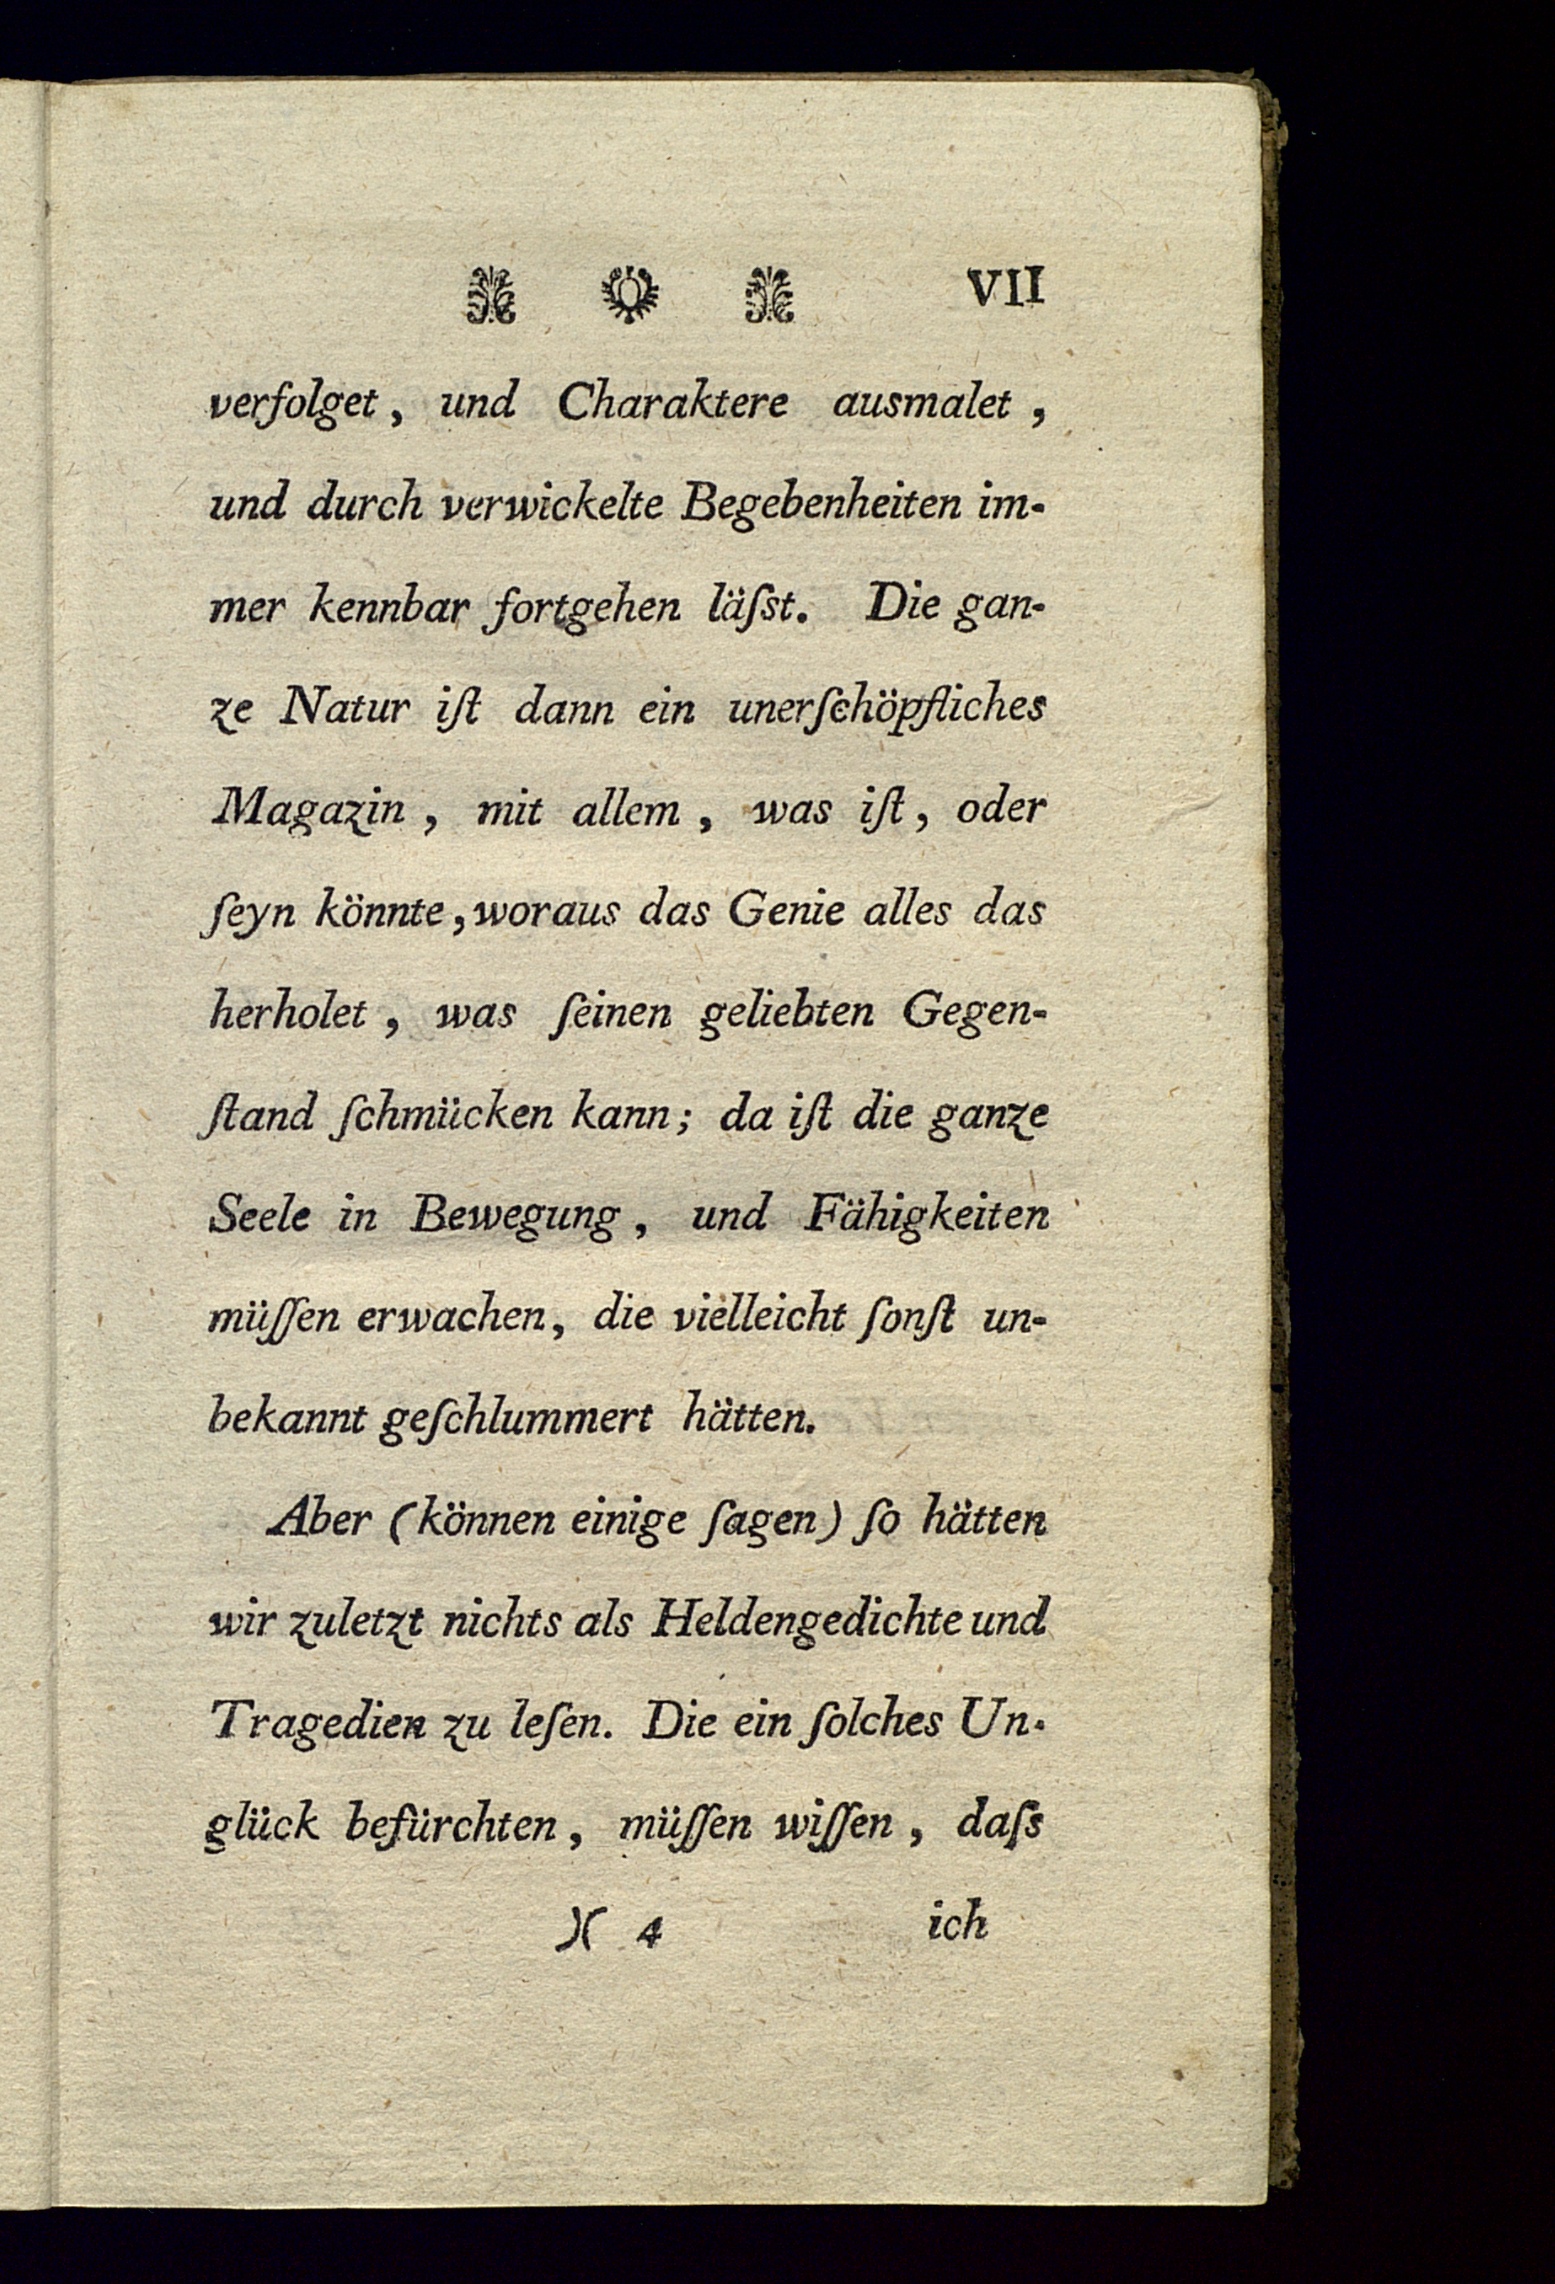 VII
verfolget, und Charaktere ausmalet,
und durch verwickelte Begebenheiten im-
mer kennbar fortgehen läſst. Die gan-
ze Natur iſt dann ein unerſchöpfliches
Magazin, mit allem, was iſt, oder
ſeyn könnte, woraus das Genie alles das
herholet, was ſeinen geliebten Gegen-
ſtand ſchmücken kann; da iſt die ganze
Seele in Bewegung, und Fähigkeiten
müſſen erwachen, die vielleicht ſonſt un-
bekannt geſchlummert hätten.
Aber (können einige ſagen) ſo hätten
wir zuletzt nichts als Heldengedichte und
Tragedien zu leſen. Die ein ſolches Un-
glück befürchten, müſſen wiſſen, daſs
)( 4 ich